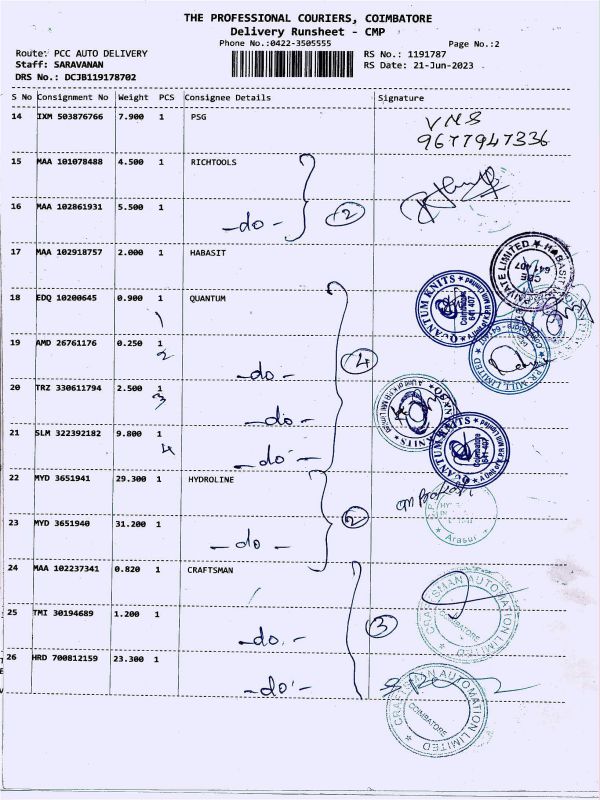 THE PROFESSIONAL COURIERS, COIMBATORE
Delivery Runsheet - CMP
Phone No.:0422-3505555 Page No.:2
Route: PCC AUTO DELIVERY RS No.: 1191787
Staff: SARAVANAN RS Date: 21-Jun-2023
DRS No.: DCJB119178702
S No Consignment No Weight PCS Consignee Details Signature
14 IXM 503876766 7.900 1 PSG VNS
9677947336
15 MAA 101078488 4.500 1 RICHTOOLS
16 MAA 102861931 5.500 1 -do- 2
17 MAA 102918757 2.000 1 HABASIT
18 EDQ 10200645 0.900 1 QUANTUM
1
19 AMD 26761176 0.250 1 -do- 4
2
20 TRZ 330611794 2.500 1 -do-
3
21 SLM 322392182 9.800 1 -do-
4
22 MYD 3651941 29.300 1 HYDROLINE
23 MYD 3651940 31.200 1 -do- 2
24 MAA 102237341 0.820 1 CRAFTSMAN
25 TMI 30194689 1.200 1 -do- 3
26 HRD 700812159 23.300 1 -do-
QUANTUM KNITS
Coimbatore
641 407
PRIVATE LIMITED ★ HABASIT
CBE
641 407
MILL LIMITED
KNITS
QUANTUM KNITS
Coimbatore
641 407
Arasur
CRAFTSMAN AUTOMATION LIMITED
COIMBATORE
CRAFTSMAN AUTOMATION LIMITED
COIMBATORE